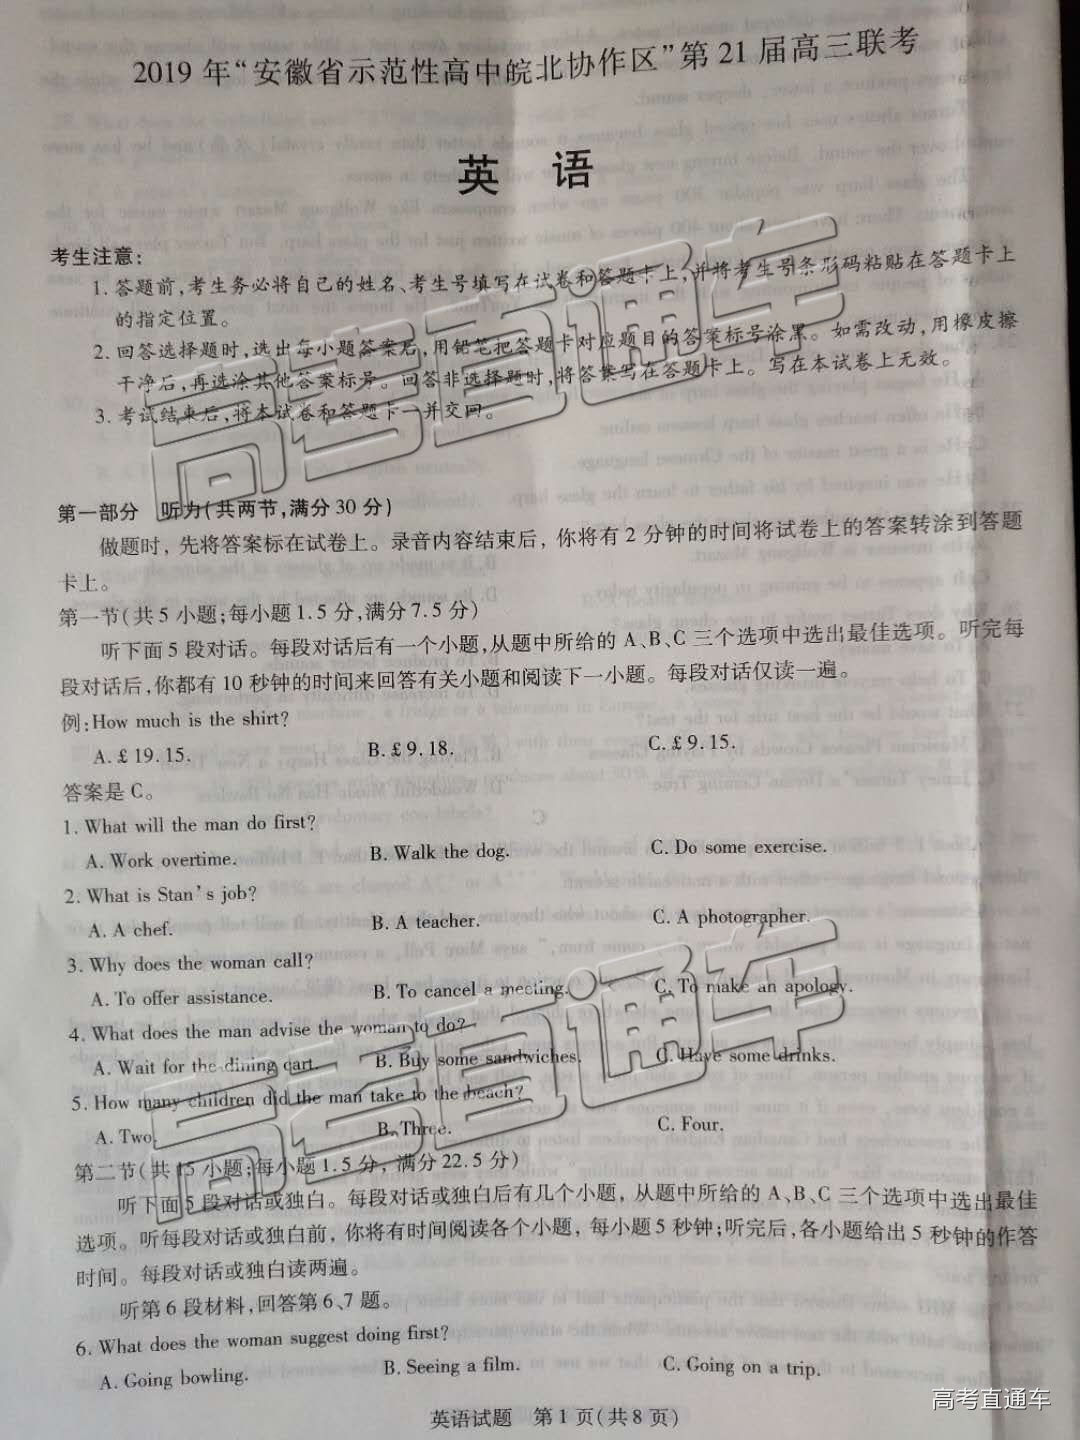 2019 年“安徽省示范性高中皖北协作区”第 21 届高三联考
英 语
考生注意:
1. 答题前,考生务必将自己的姓名、考生号填写在试卷和答题卡上,并将考生号条形码粘贴在答题卡上
的指定位置。
2. 回答选择题时,选出每小题答案后,用铅笔把答题卡对应题目的答案标号涂黑。如需改动,用橡皮擦
干净后,再选涂其他答案标号。回答非选择题时,将答案写在答题卡上。写在本试卷上无效。
3. 考试结束后,将本试卷和答题卡一并交回。
第一部分 听力(共两节,满分 30 分)
做题时，先将答案标在试卷上。录音内容结束后，你将有 2 分钟的时间将试卷上的答案转涂到答题
卡上。
第一节(共 5 小题;每小题 1.5 分,满分 7.5 分)
听下面 5 段对话。每段对话后有一个小题,从题中所给的 A、B、C 三个选项中选出最佳选项。听完每
段对话后,你都有 10 秒钟的时间来回答有关小题和阅读下一小题。每段对话仅读一遍。
例:How much is the shirt?
A. £ 19.15. B. £ 9.18. C. £ 9.15.
答案是 C。
1. What will the man do first?
A. Work overtime. B. Walk the dog. C. Do some exercise.
2. What is Stan’s job?
A. A chef. B. A teacher. C. A photographer.
3. Why does the woman call?
A. To offer assistance. B. To cancel a meeting. C. To make an apology.
4. What does the man advise the woman to do?
A. Wait for the dining cart. B. Buy some sandwiches. C. Have some drinks.
5. How many children did the man take to the beach?
A. Two. B. Three. C. Four.
第二节(共 15 小题;每小题 1.5 分，满分 22.5 分)
听下面 5 段对话或独白。每段对话或独白后有几个小题，从题中所给的 A、B、C 三个选项中选出最佳
选项。听每段对话或独白前，你将有时间阅读各个小题，每小题 5 秒钟;听完后,各小题给出 5 秒钟的作答
时间。每段对话或独白读两遍。
听第 6 段材料,回答第 6、7 题。
6. What does the woman suggest doing first?
A. Going bowling. B. Seeing a film. C. Going on a trip.
英语试题 第 1 页(共 8 页)
高考直通车
高考直通车
高考直通车